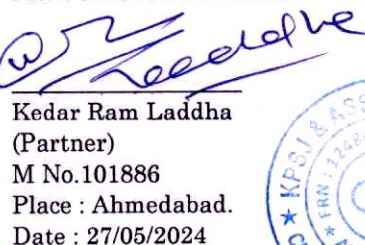 Laddha
Kedar Ram Laddha
(Partner)
M No.101886
Place : Ahmedabad.
Date : 27/05/2024
KPSJ & ASS
FRN : 1248